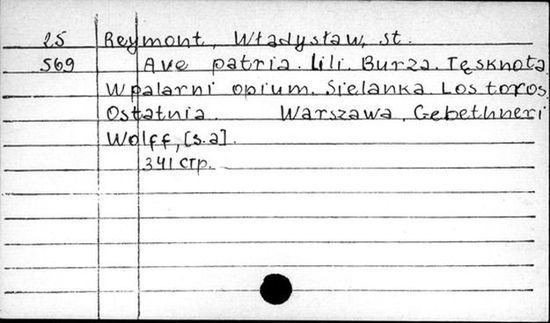 25 Reymont, Władysław, st.
569 Ave patria. Lili. Burza. Tęsknota
W palarni opium. Sielanka. Los toros
Ostatnia. Warszawa, Gebethner i
Wolff, [s.a].
341 стр.